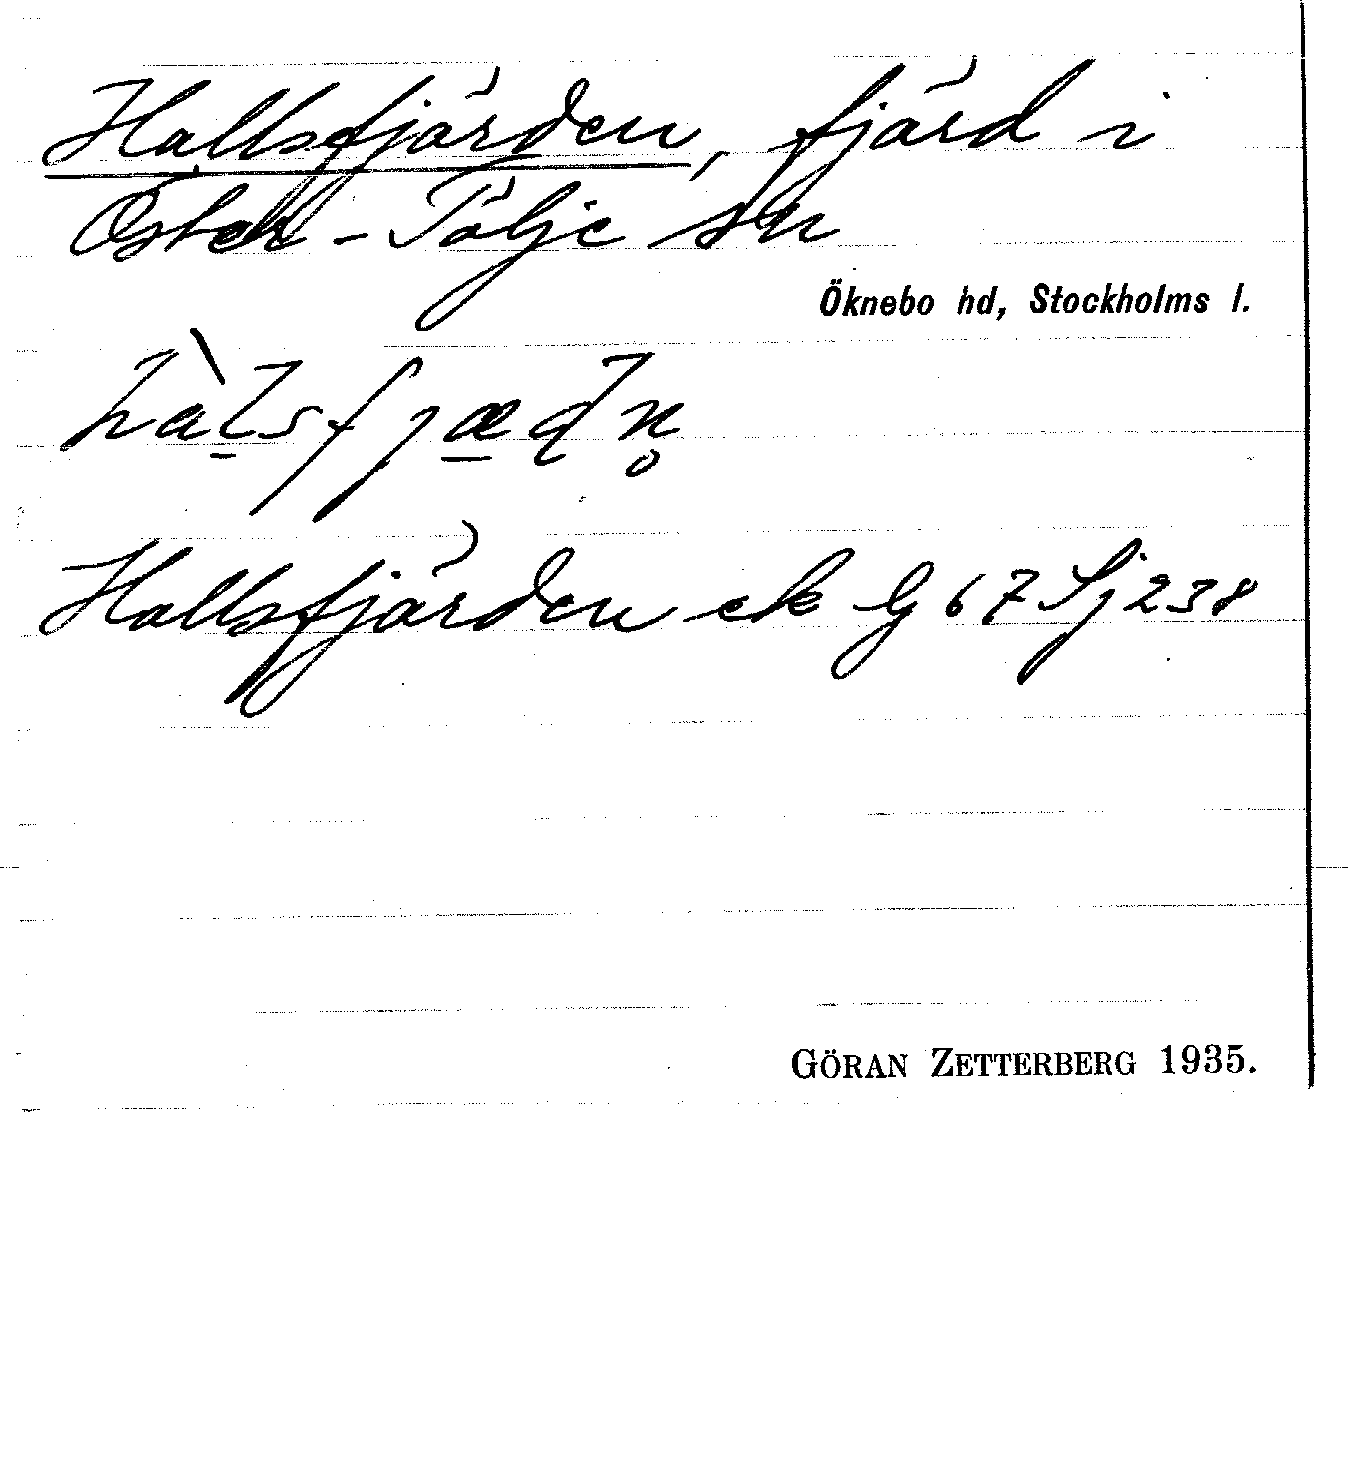 Hallsfjärden, fjärd i
Öster-Tälje sn
Öknebo hd, Stockholms l.
hàl̠sfjæ̠ɖn̥
Hallsfjärden ek G 67 Sj 238
GÖRAN ZETTERBERG 1935.